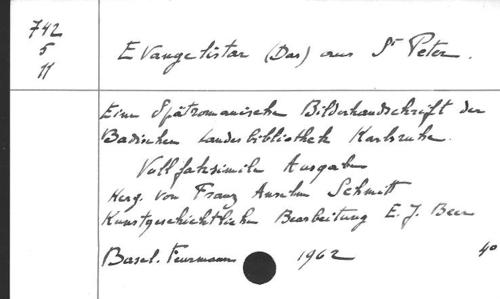 742
5
11
Evangelistar (Das) aus St Peter.
Eine Spätromanische Bilderhandschrift der
Badischen Landesbibliothek Karlsruhe.
Vollfaksimile Ausgabe
Herg. von Franz Anselm Schmitt
Kunstgeschichtliche Bearbeitung E. J. Beer
Basel. Feuermann 1962 4°